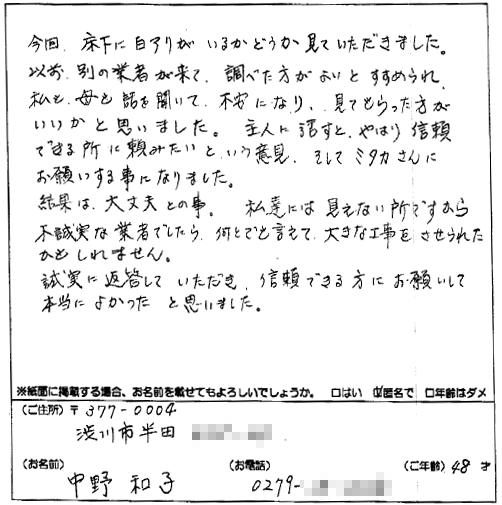 今回、床下に白アリがいるかどうか見ていただきました。
以前、別の業者が来て、調べた方がよいとすすめられ、
私と、母と話を聞いて、不安になり、見てもらった方が
いいかと思いました。 主人に話すと、やはり信頼
できる所に頼みたいという意見、そしてミタカさんに
お願いする事になりました。
結果は、大丈夫との事。 私達には見えない所ですから
不誠実な業者でしたら、何とでも言えて、大きな工事をさせられた
かもしれません。
誠実に返答していただき、信頼できる方にお願いして
本当によかったと思いました。
※紙面に掲載する場合、お名前を載せてもよろしいでしょうか。 □はい ☑匿名で □年齢はダメ
(ご住所) 〒377-0004
渋川市半田
(お名前) 中野 和子 (お電話) 0279- (ご年齢) 48 才